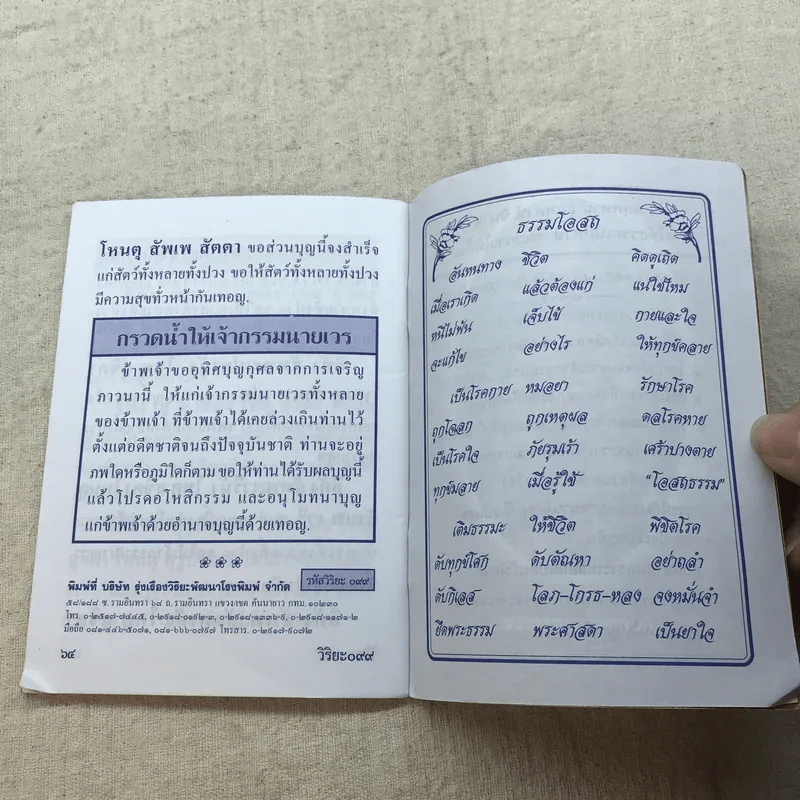 โหนตุ สัพเพ สัตตา ขอส่วนบุญนี้จงสำเร็จ
แก่สัตว์ทั้งหลายทั้งปวง ขอให้สัตว์ทั้งหลายทั้งปวง
มีความสุขทั่วหน้ากันเทอญ.
กรวดน้ำให้เจ้ากรรมนายเวร
ข้าพเจ้าขออุทิศบุญกุศลจากการเจริญ
ภาวนานี้ ให้แก่เจ้ากรรมนายเวรทั้งหลาย
ของข้าพเจ้า ที่ข้าพเจ้าได้เคยล่วงเกินท่านไว้
ตั้งแต่อดีตชาติจนถึงปัจจุบันชาติ ท่านจะอยู่
ภพใดหรือภูมิใดก็ตาม ขอให้ท่านได้รับผลบุญนี้
แล้วโปรดอโหสิกรรม และอนุโมทนาบุญ
แก่ข้าพเจ้าด้วยอำนาจบุญนี้ด้วยเทอญ.
พิมพ์ที่ บริษัท รุ่งเรืองวิริยะพัฒนาโรงพิมพ์ จำกัด รหัสวิริยะ ๐๙๙
๕๘/๑๘๘ ซ.รามอินทรา ๖๘ ถ.รามอินทรา แขวง/เขต คันนายาว กทม. ๑๐๒๓๐
โทร. ๐-๒๕๑๗-๗๔๔๕, ๐-๒๙๑๘-๐๑๙๒-๓, ๐-๒๙๑๘-๑๓๓๖-๙, ๐-๒๙๑๘-๑๑๗๑-๒
มือถือ ๐๘๑-๔๔๖-๕๐๗๑, ๐๘๑-๖๖๖-๐๗๙๗ โทรสาร. ๐-๒๙๑๗-๙๐๗๒
๖๔ วิริยะ๐๙๙
ธรรมโอสถ
อันหนทาง ชีวิต คิดดูเถิด
เมื่อเราเกิด แล้วต้องแก่ แน่ใช่ไหม
หนีไม่พ้น เจ็บไข้ กายและใจ
จะแก้ไข อย่างไร ให้ทุกข์คลาย
เป็นโรคกาย หมอยา รักษาโรค
ถูกโฉลก ถูกเหตุผล ดลโรคหาย
เป็นโรคใจ ภัยรุมเร้า เศร้าปางตาย
ทุกข์มลาย เมื่อรู้ใช้ “โอสถธรรม”
เติมธรรมะ ให้ชีวิต พิชิตโรค
ดับทุกข์โศก ดับตัณหา อย่าถลำ
ดับกิเลส โลภ-โกรธ-หลง จงหมั่นจำ
ยึดพระธรรม พระศาสดา เป็นยาใจ